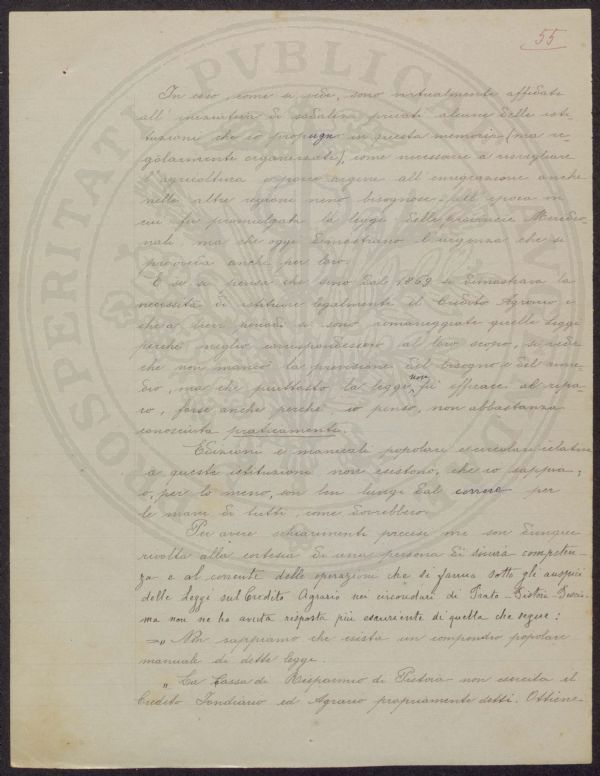 55
In esso, come si vede, sono virtualmente affidate
all'iniziativa di sodalizi privati alcune delle isti-
tuzioni che io propugno in questa memoria (ma re-
golarmente organizzate), come necessarie a risvegliare
l'agricoltura e porre argine all'emigrazione anche
nelle altre regioni meno bisognose all'epoca in
cui fu promulgata la legge delle provincie Meridio-
nali, ma che oggi dimostrano l'urgenza che si
provveda anche per loro.
E se si pensa che sino dal 1869 si dimostrava la
necessità di istituire legalmente il Credito Agrario e
che a brevi periodi si sono rimaneggiate quelle leggi
perché meglio corrispondessero al loro scopo, si vede
che non mancò la previsione del bisogno e del rime-
dio, ma che piuttosto la legge non fu efficace al ripa-
ro, forse anche perché io penso, non abbastanza
conosciuta praticamente.
Edizioni e manuali popolari e circolari relative
a queste istituzioni non esistono, che io sappia;
o, per lo meno, son ben lungi dal correre per
le mani di tutti, come dovrebbero.
Per avere schiarimenti precisi me son dunque
rivolta alla cortesia di una persona di sicura competen-
za e al corrente delle operazioni che si fanno sotto gli auspici
delle Leggi sul Credito Agrario nei circondari di Prato - Pistoia - Pescia -
ma non ne ho avuta risposta più esauriente di quella che segue:
=„ Non sappiamo che esista un compendio popolare
manuale di dette leggi.
„ La Cassa di Risparmio di Pistoia non esercita il
Credito Fondiario ed Agrario propriamente detti. Ottiene-
PROSPERITATI PVBLICAE